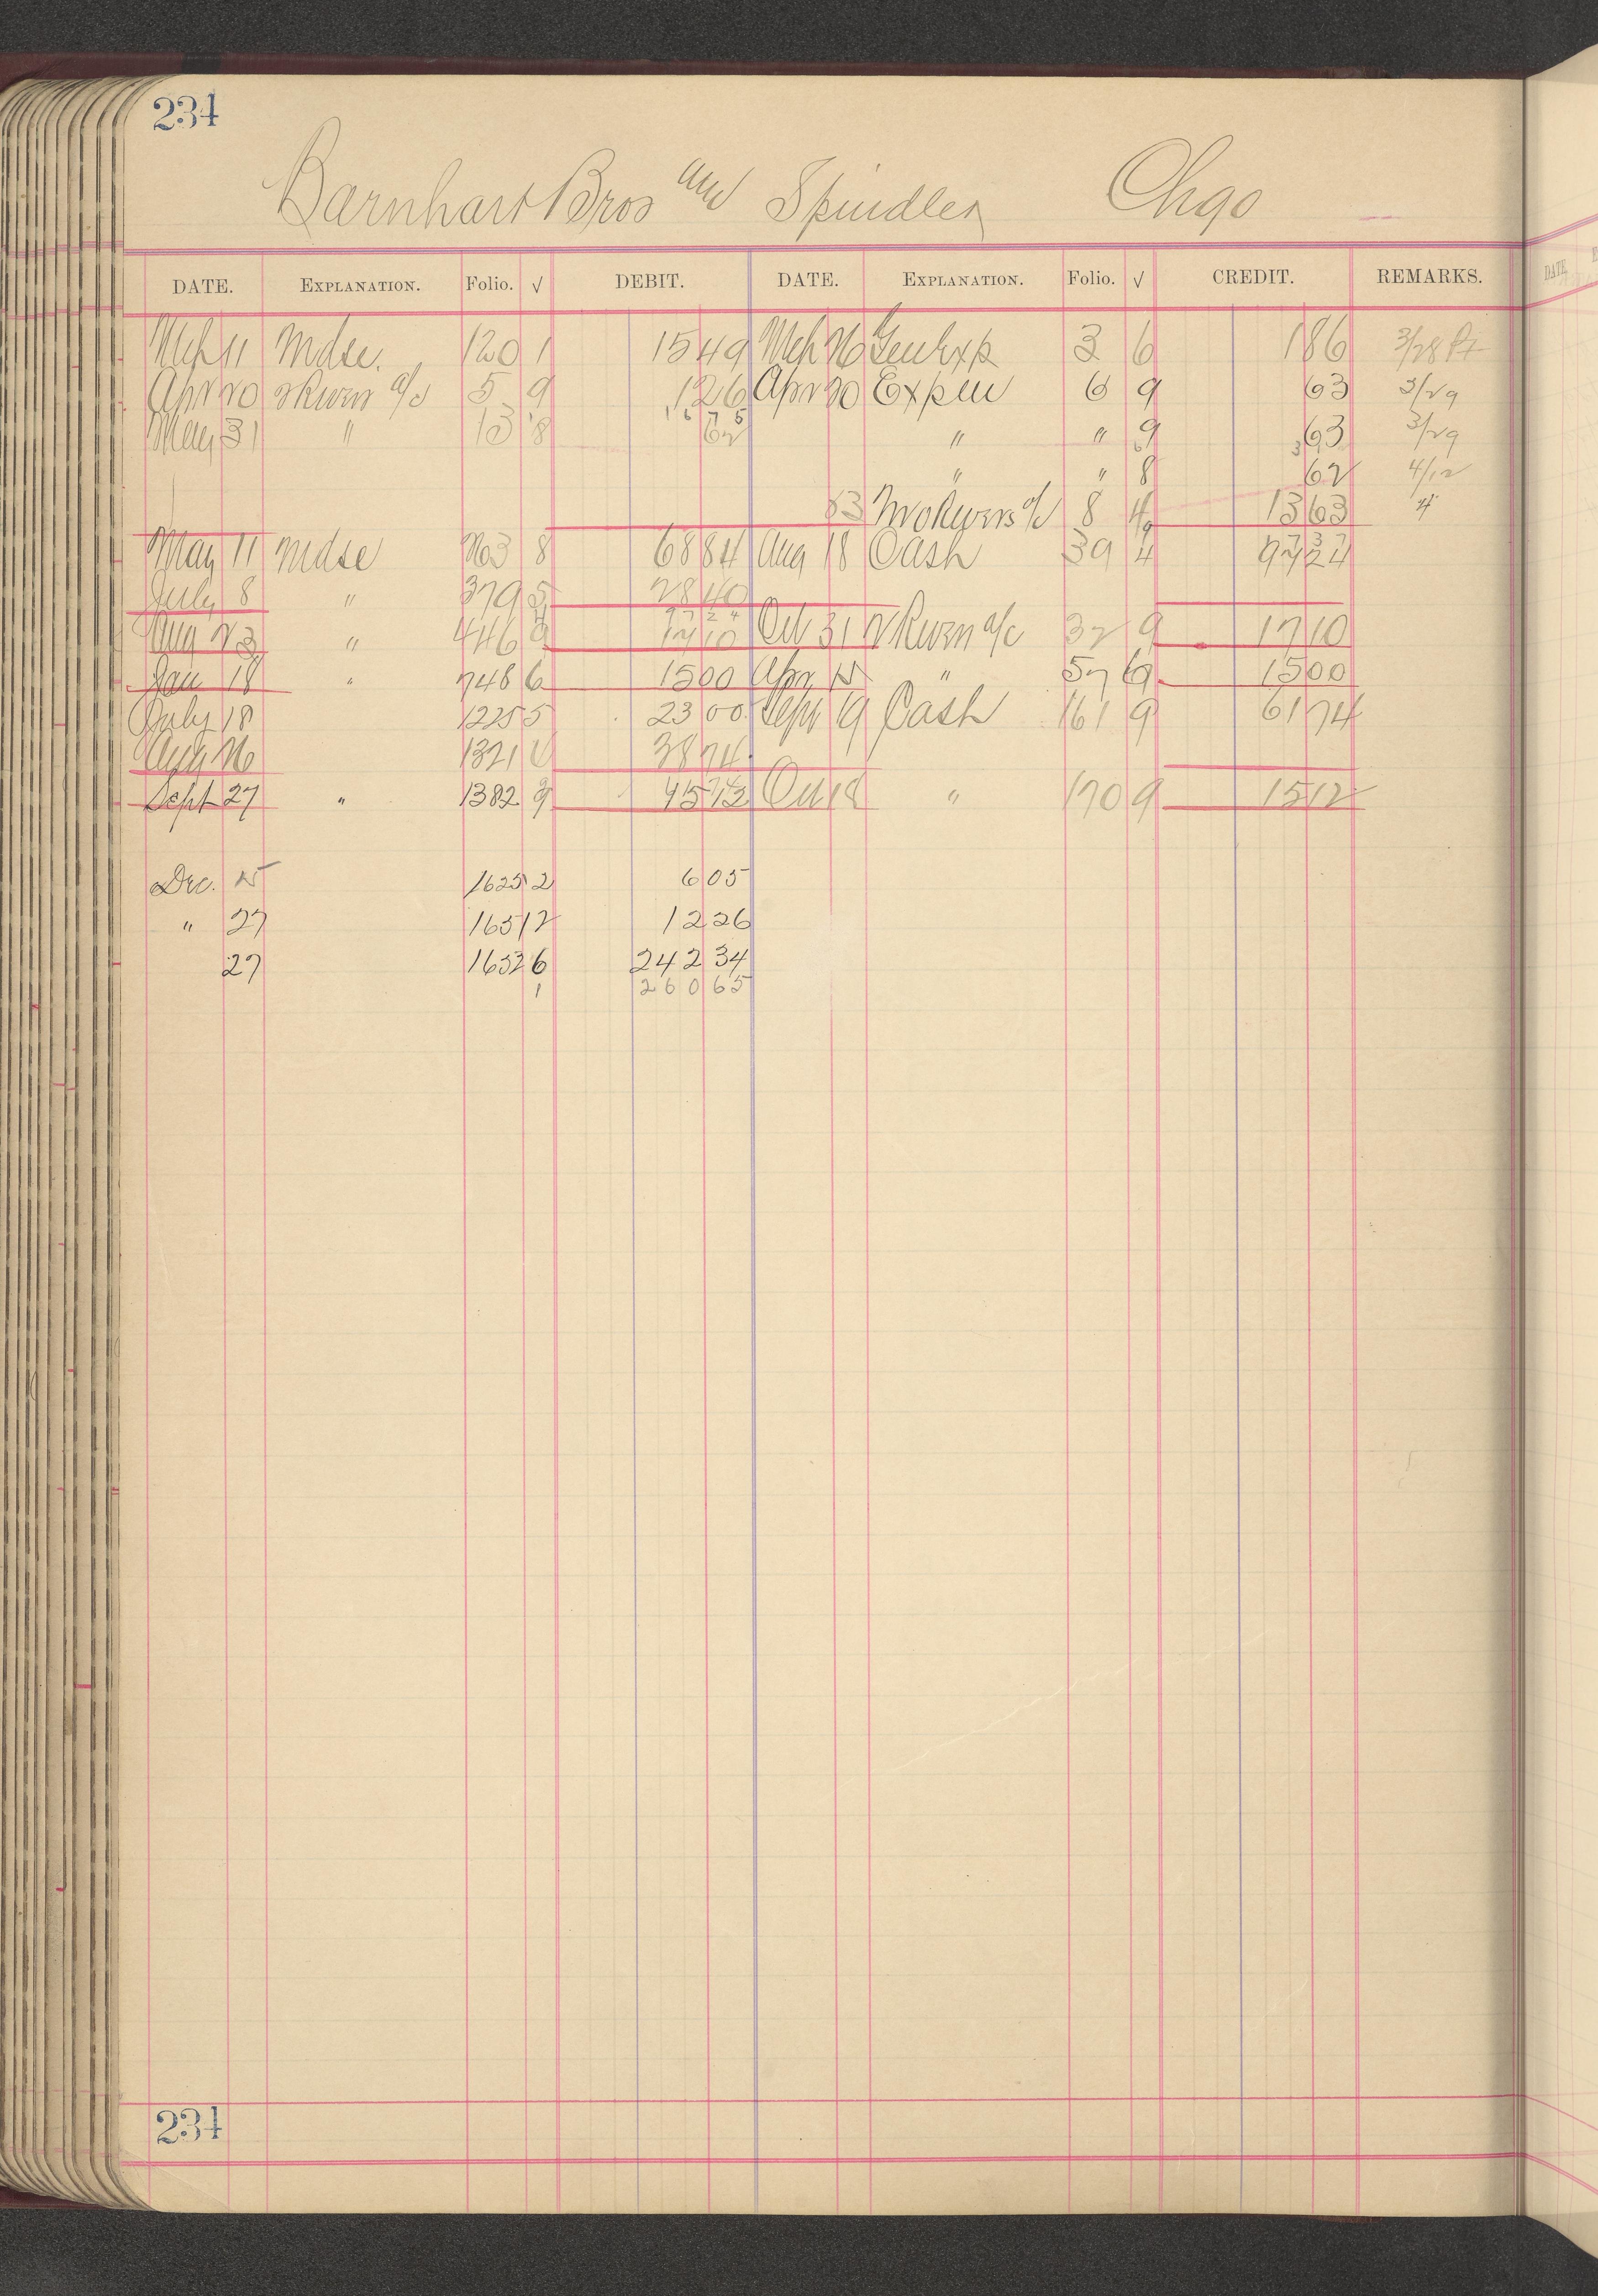 234
Barnhart Bros and Spindler Chgo
DATE. EXPLANATION. Folio. √ DEBIT. DATE. EXPLANATION. Folio. √ CREDIT. REMARKS.
Mch 11 Mdse. 120 1 15 49 Mch 26 Gen Exp 3 6 1 86 3/28
Apr 20 a/c 5 9 1 26 Apr 20 Expen 6 9 63 3/29
May 31 " 13 8 62 " " 9 63 3/29
" " 8 62 4/12
a/c 8 4 13 63 4
May 11 Mdse 8 68 84 Aug 18 Cash 39 4 97 24
July 8 " 379 5 28 40
Aug 23 " 446 9 17 10 Oct 31 a/c 32 9 17 10
Jan 18 " 748 6 15 00 Apr 15 " 57 9 15 00
July 18 1225 5 23 00 Sept 19 Cash 161 9 61 74
Aug 26 1321 38 74
Sept 27 " 1382 9 15 12 Oct 18 " 170 9 15 12
Dec. 15 1625 2 6 05
" 27 1651 2 12 26
27 1652 6 242 34
1 260 65
234